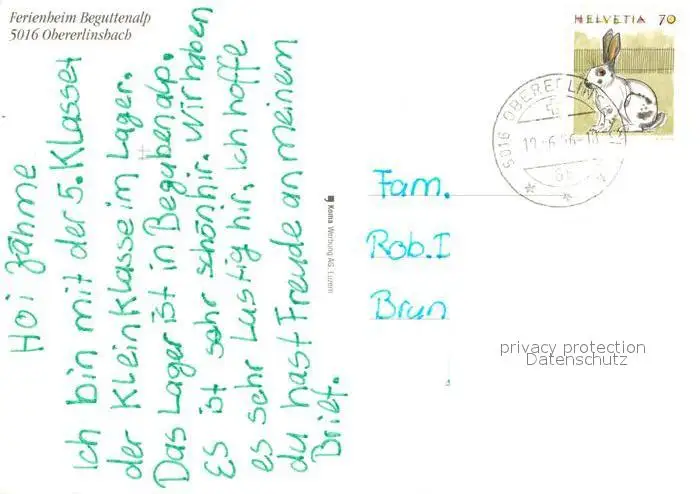 Ferienheim Beguttenalp
5016 Obererlinsbach
Hoi Jähme
Ich bin mit der 5. Klasse
der Kleinklasse im Lager.
Das Lager ist in Begubenalp.
Es ist sehr schön hir. wir haben
es sehr Lustig hir. Ich hoffe
du hast Freude an meinem
Brief.
Koma Werbung AG, Luzern
HELVETIA 70
5016 OBERERLINSBACH
Fam.
Rob. I
Brun
privacy protection
Datenschutz